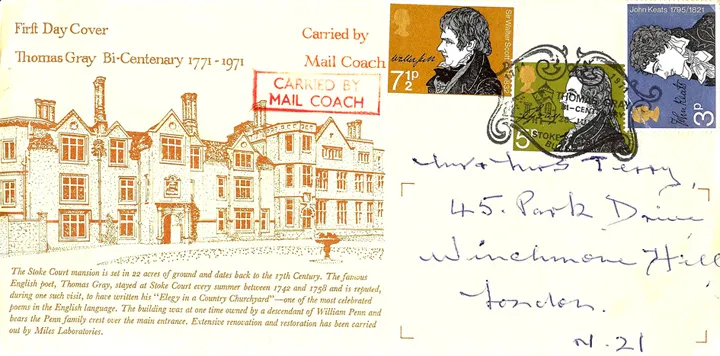 First Day Cover
Thomas Gray Bi-Centenary 1771-1971
Carried by
Mail Coach
CARRIED BY
MAIL COACH
Sir Walter Scott
7½p
John Keats 1795/1821
John Keats
3p
THOMAS GRAY
BI-CENT
STOKE
5
The Stoke Court mansion is set in 22 acres of ground and dates back to the 17th Century. The famous
English poet, Thomas Gray, stayed at Stoke Court every summer between 1742 and 1758 and is reputed,
during one such visit, to have written his "Elegy in a Country Churchyard"—one of the most celebrated
poems in the English language. The building was at one time owned by a descendant of William Penn and
bears the Penn family crest over the main entrance. Extensive renovation and restoration has been carried
out by Miles Laboratories.
Mr & Mrs Terry,
45. Park Drive
Winchmore Hill
London.
N. 21